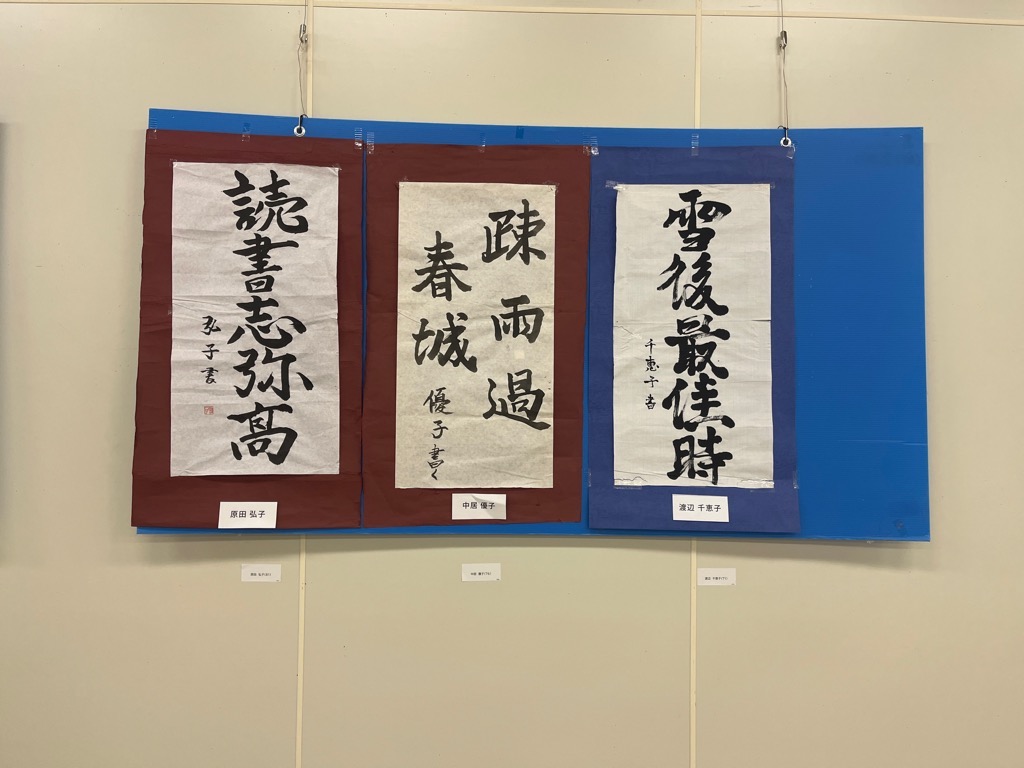 読書志弥高
弘子書
原田 弘子
疎雨過
春城
優子書く
中居 優子
雪後最佳時
千恵子書
渡辺 千恵子